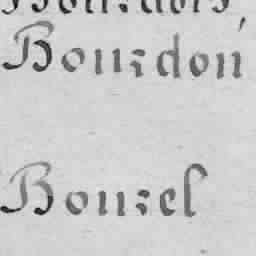 Bourdon
Bourel